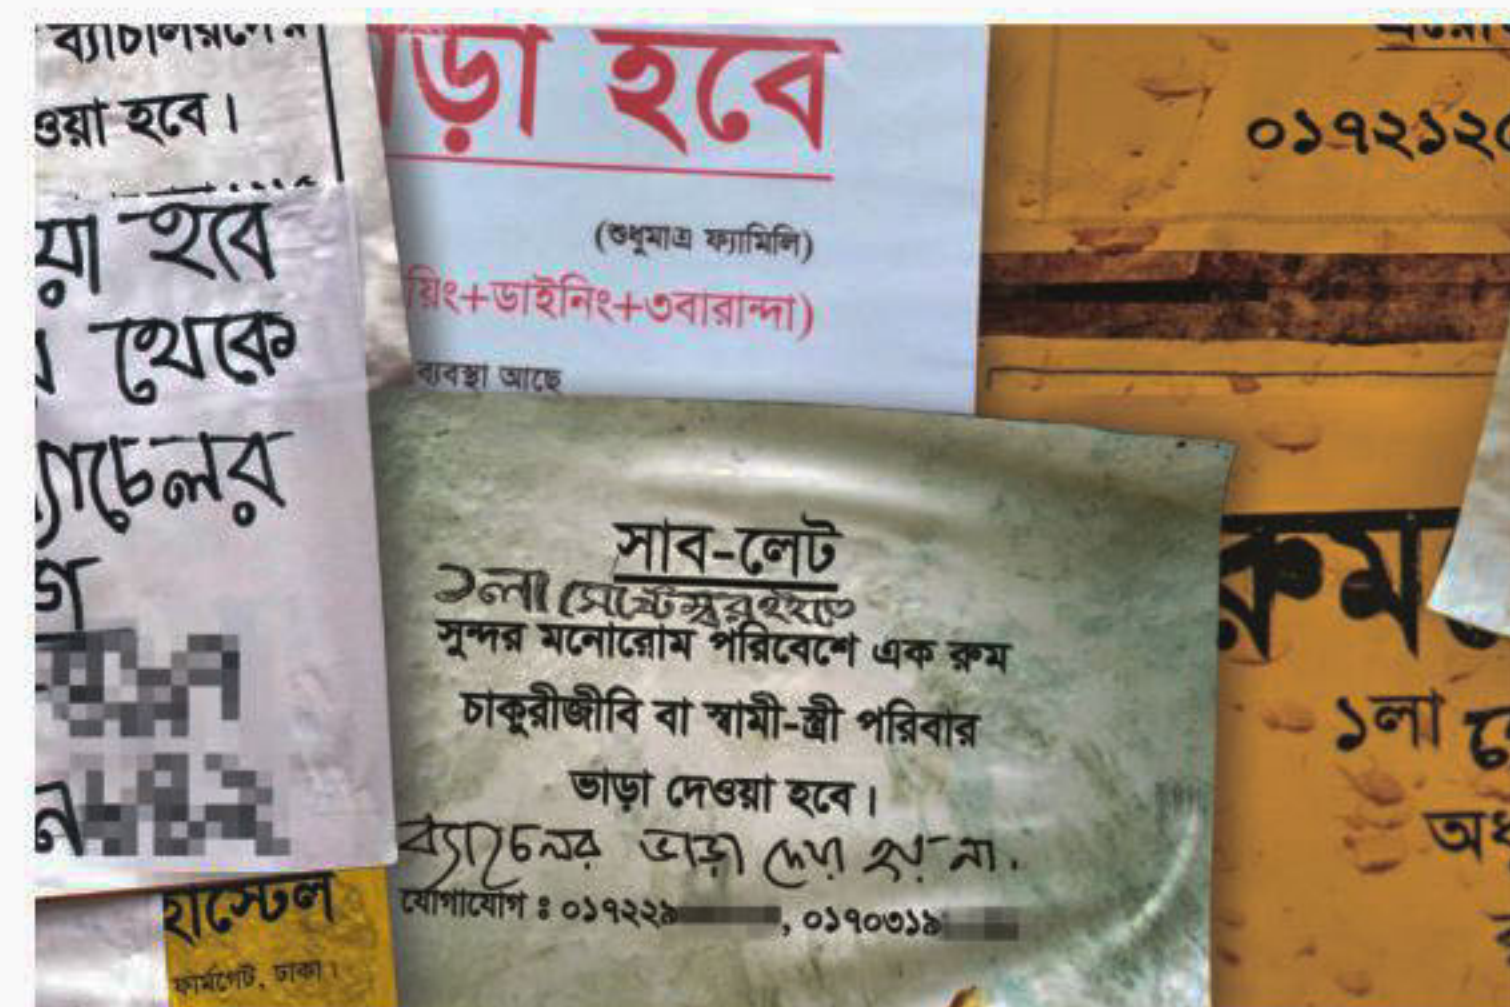 ওয়া হবে।
য়া হবে
থেকে
্যাচেলর
ড়া হবে
(শুধুমাত্র ফ্যামিলি)
য়িং+ডাইনিং+৩বারান্দা)
ব্যবস্থা আছে
সাব-লেট
১লা সেপ্টেম্বর হইতে
সুন্দর মনোরোম পরিবেশে এক রুম
চাকুরীজীবি বা স্বামী-স্ত্রী পরিবার
ভাড়া দেওয়া হবে।
ব্যাচেলর ভাড়া দেয়া হয় না.
যোগাযোগ ঃ ০১৭২২৯, ০১৭০৩১৯
হাস্টেল
ফার্মগেট, ঢাকা।
০১৭২১২
রুম
১লা
অ